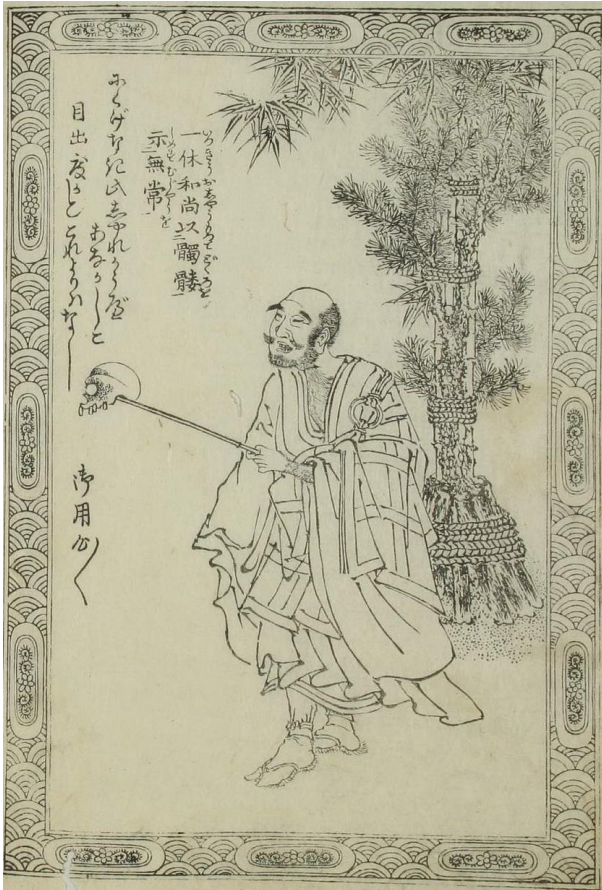 一休和尚以髑髏
示無常
にくげなき此志やれかうべ
あなかしこ
目出度かしこれよりハなし
御用心〱